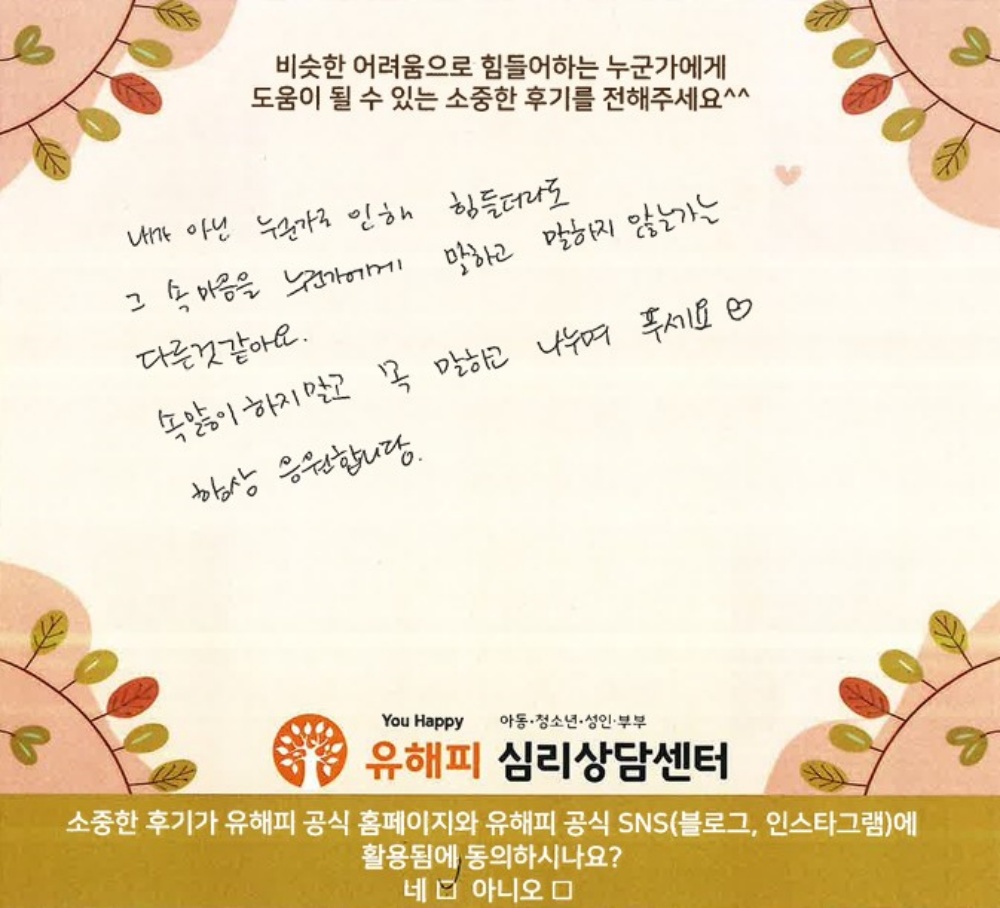 비슷한 어려움으로 힘들어하는 누군가에게
도움이 될 수 있는 소중한 후기를 전해주세요^^
내가 아닌 누군가로 인해 힘들더라도
그 속마음을 누군가에게 말하고 말하지 않는가는
다른것같아요.
속앓이 하지말고 꼭 말하고 나누며 푸세요♡
항상 응원합니당.
You Happy 아동·청소년·성인·부부
유해피 심리상담센터
소중한 후기가 유해피 공식 홈페이지와 유해피 공식 SNS(블로그, 인스타그램)에
활용됨에 동의하시나요?
네 ☑ 아니오 □